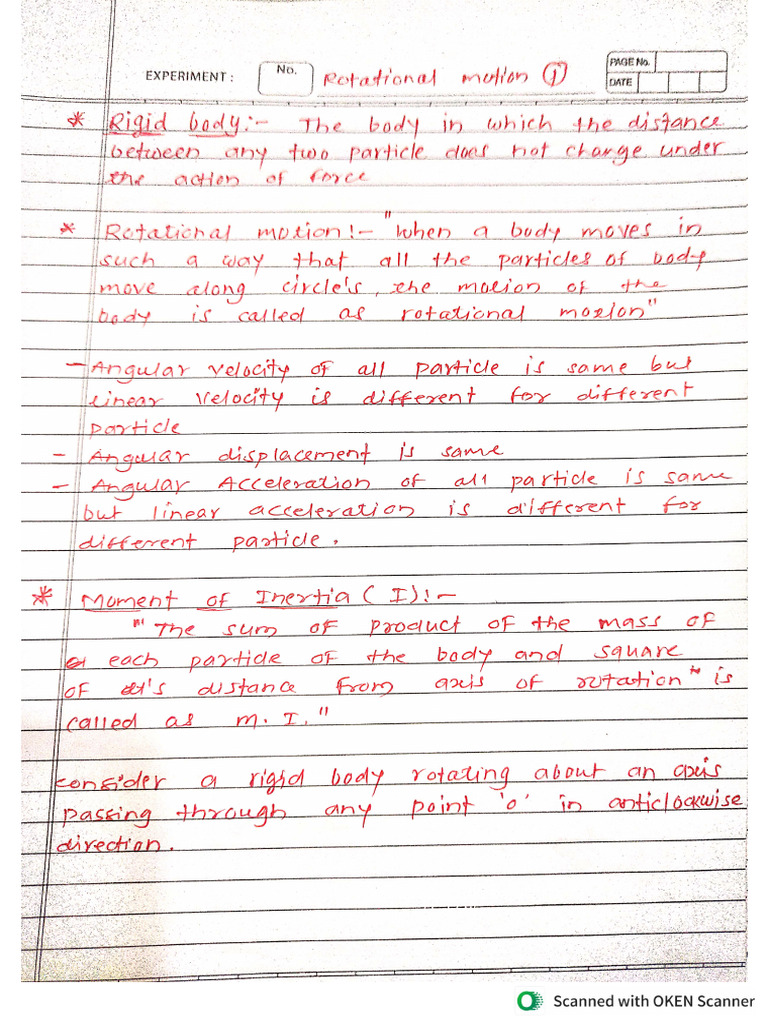 EXPERIMENT : No. Rotational motion ① PAGE No.
DATE
* Rigid body:- The body in which the distance
between any two particle does not change under
the action of force
* Rotational motion:- "When a body moves in
such a way that all the particles of body
move along circle's, the motion of the
body is called as rotational motion"
- Angular velocity of all particle is same but
linear velocity is different for different
particle
- Angular displacement is same
- Angular Acceleration of all particle is same
but linear acceleration is different for
different particle.
* Moment of Inertia (I):-
"The sum of product of the mass of
each particle of the body and square
of it's distance from axis of rotation" is
called as M.I."
consider a rigid body rotating about an axis
passing through any point 'o' in anticlockwise
direction.
Scanned with OKEN Scanner